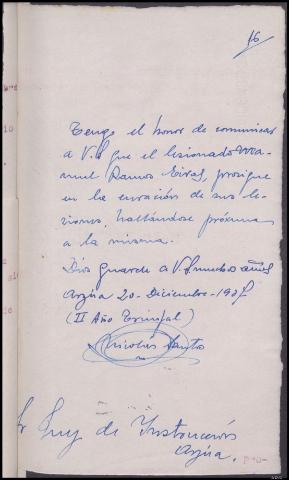 16
Tengo el honor de comunicar
a V.S que el lesionado Ma-
nuel Ramos Eiras, prosigue
en la curación de sus le-
siones, hallándose próximo
a la misma.
Dios guarde a V.S muchos años
Arzúa 20-Diciembre-1937
(II Año Triunfal)
Nicolás Santos
Sr Juez de Instrucción
Arzúa.